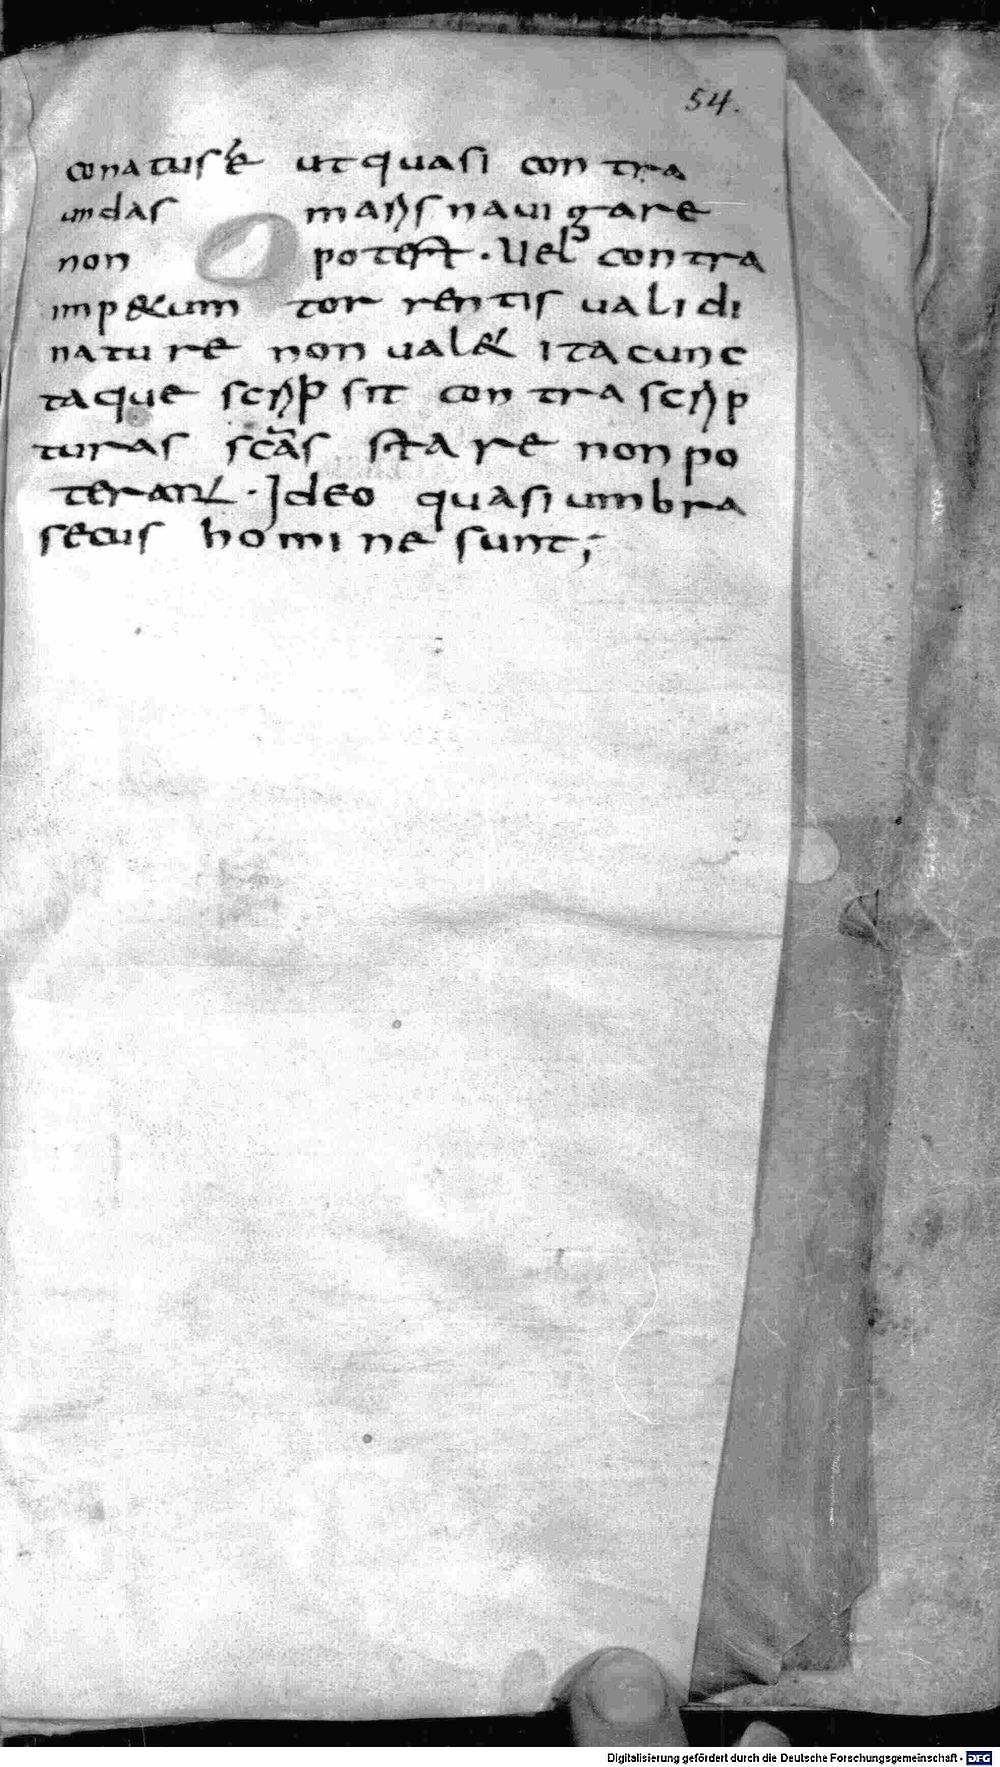 54.
conatus ē ut quasi contra
undas maris navigare
non potest. Uel contra
impetum torrentis ualidi
nature non ualet ita cunc
taque scripsit contra scrip
turas scās stare non po
terant. Ideo quasi umbra
secus homine sunt;
Digitalisierung gefördert durch die Deutsche Forschungsgemeinschaft - DFG